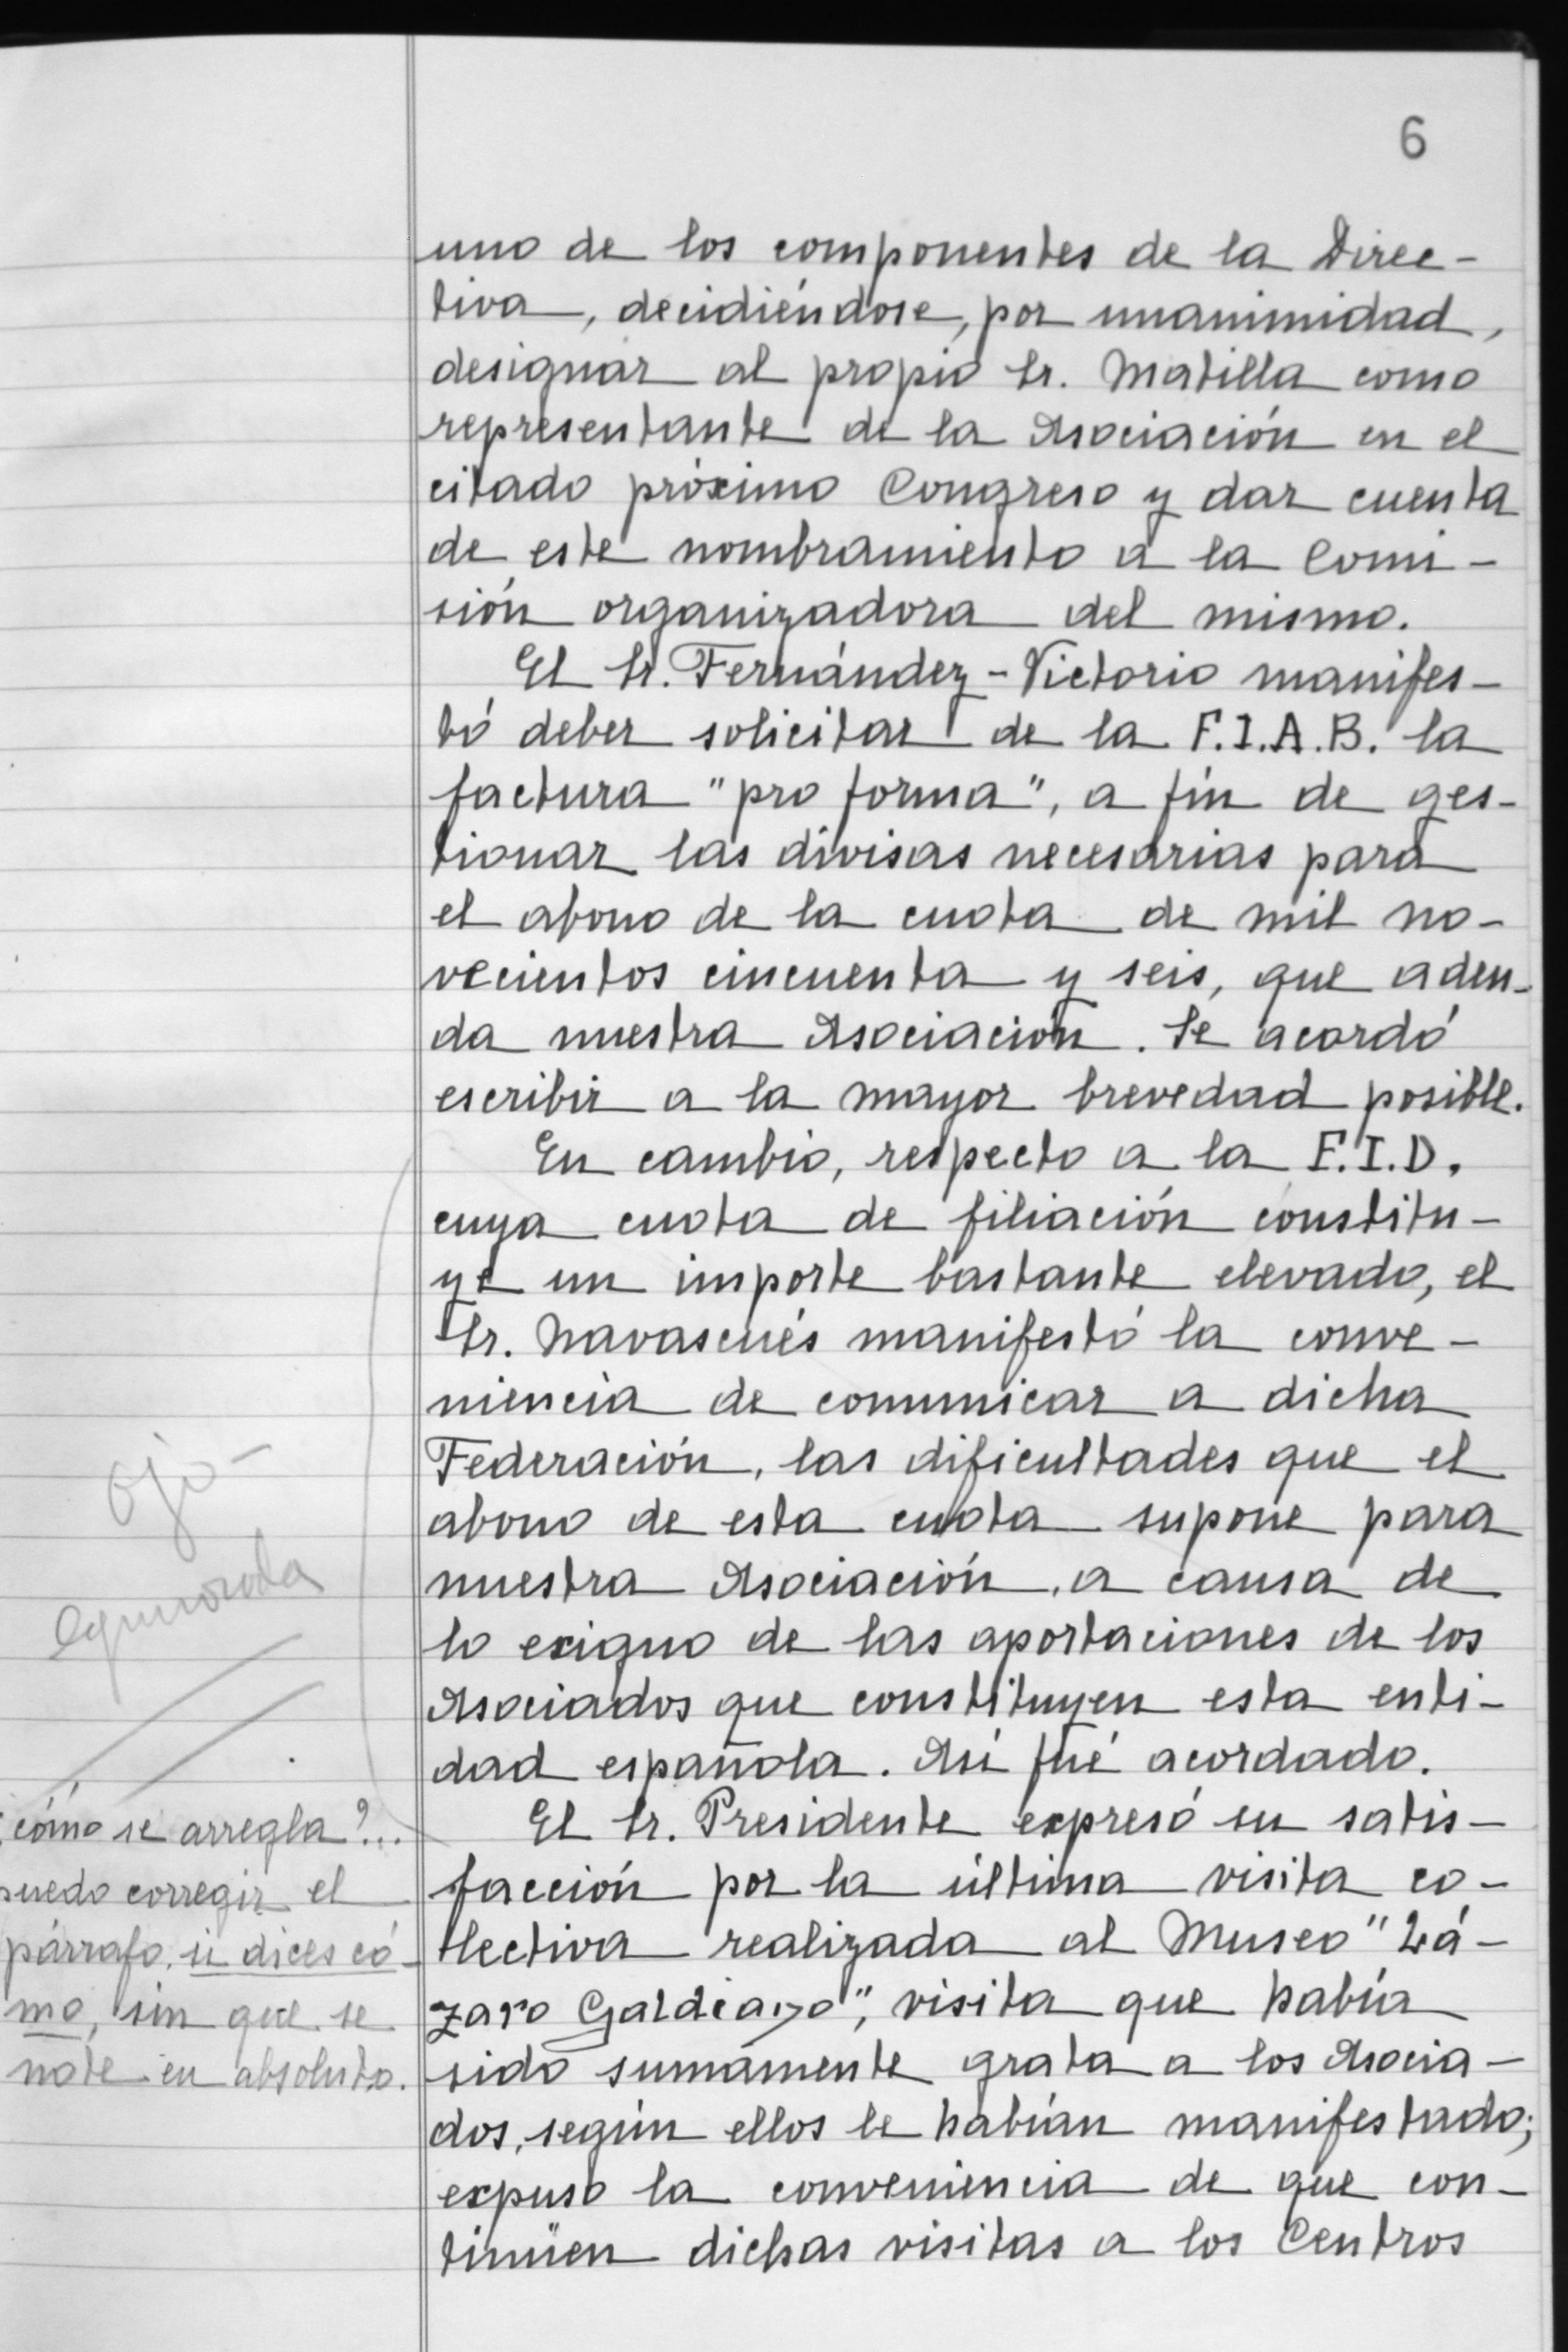 6
uno de los componentes de la Direc-
tiva, decidiéndose, por unanimidad,
designar al propio Sr. Matilla como
representante de la Asociación en el
citado próximo Congreso y dar cuenta
de este nombramiento a la Comi-
sión organizadora del mismo.
El Sr. Fernández-Victorio manifes-
tó deber solicitar de la F.I.A.B. la
factura "pro forma", a fín de ges-
tionar las divisas necesarias para
el abono de la cuota de mil no-
vecientos cincuenta y seis, que adeu-
da nuestra Asociación. Se acordó
escribir a la mayor brevedad posible.
En cambio, respecto a la F.I.D.
cuya cuota de filiación constitu-
ye un importe bastante elevado, el
Sr. Navascués manifestó la conve-
niencia de comunicar a dicha
Federación, las dificultades que el
abono de esta cuota supone para
nuestra Asociación, a causa de
lo exiguo de las aportaciones de los
Asociados que constituyen esta enti-
dad española. Así fué acordado.
El Sr. Presidente expresó su satis-
facción por la última visita co-
lectiva realizada al Museo "Lá-
zaro Galdeano", visita que había
sido sumamente grata a los Asocia-
dos, según ellos le habían manifestado;
expuso la conveniencia de que con-
tinüen dichas visitas a los Centros
Ojo-
¿cómo se arregla?...
puedo corregir el
párrafo, si dices có-
mo, sin que se
note en absoluto.